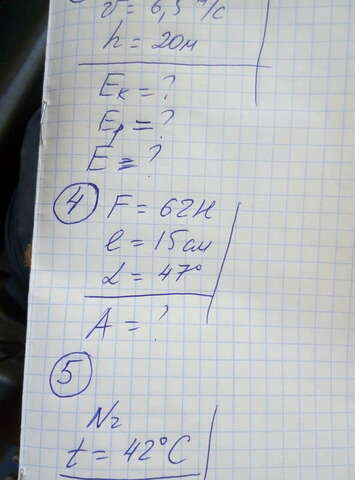 v = 6,5 м/с
h = 20м
Eк = ?
Eр = ?
E = ?
④ F = 62Н
l = 15см
α = 47°
A = ?
⑤
N₂
t = 42°C